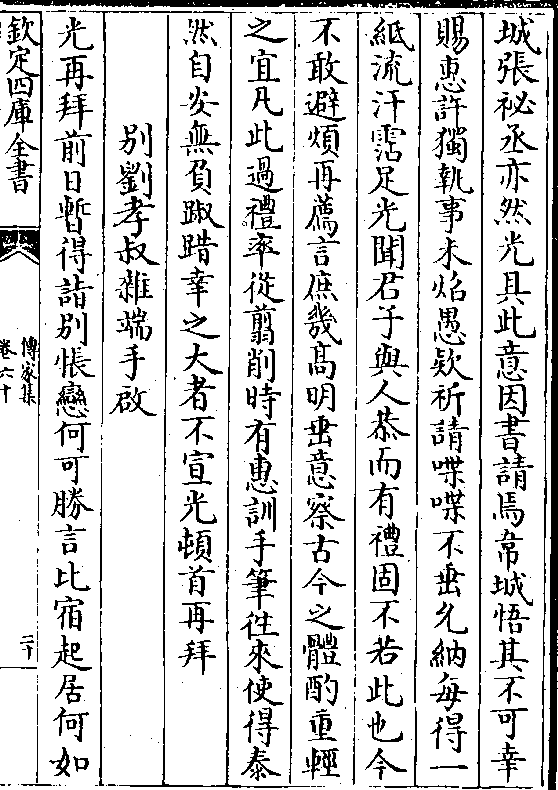 城張祕丞亦然光具此意因書請焉韋城悟其不可幸
賜恵許獨執事未炤愚欵祈請喋喋不垂允納毎得一
紙流汗霑足光聞君子與人恭而有禮固不若此也今
不敢避煩再薦言庶幾髙明垂意察古今之體酌重輕
之宜凡此過禮率從翦削時有惠訓手筆徃來使得泰
然自安無負踧踖幸之大者不宣光頓首再拜
别劉孝叔雜端手啟
光再拜前日暫得詣别悵戀何可勝言比宿起居何如
欽定四庫全書
傳家集
卷六十
二十